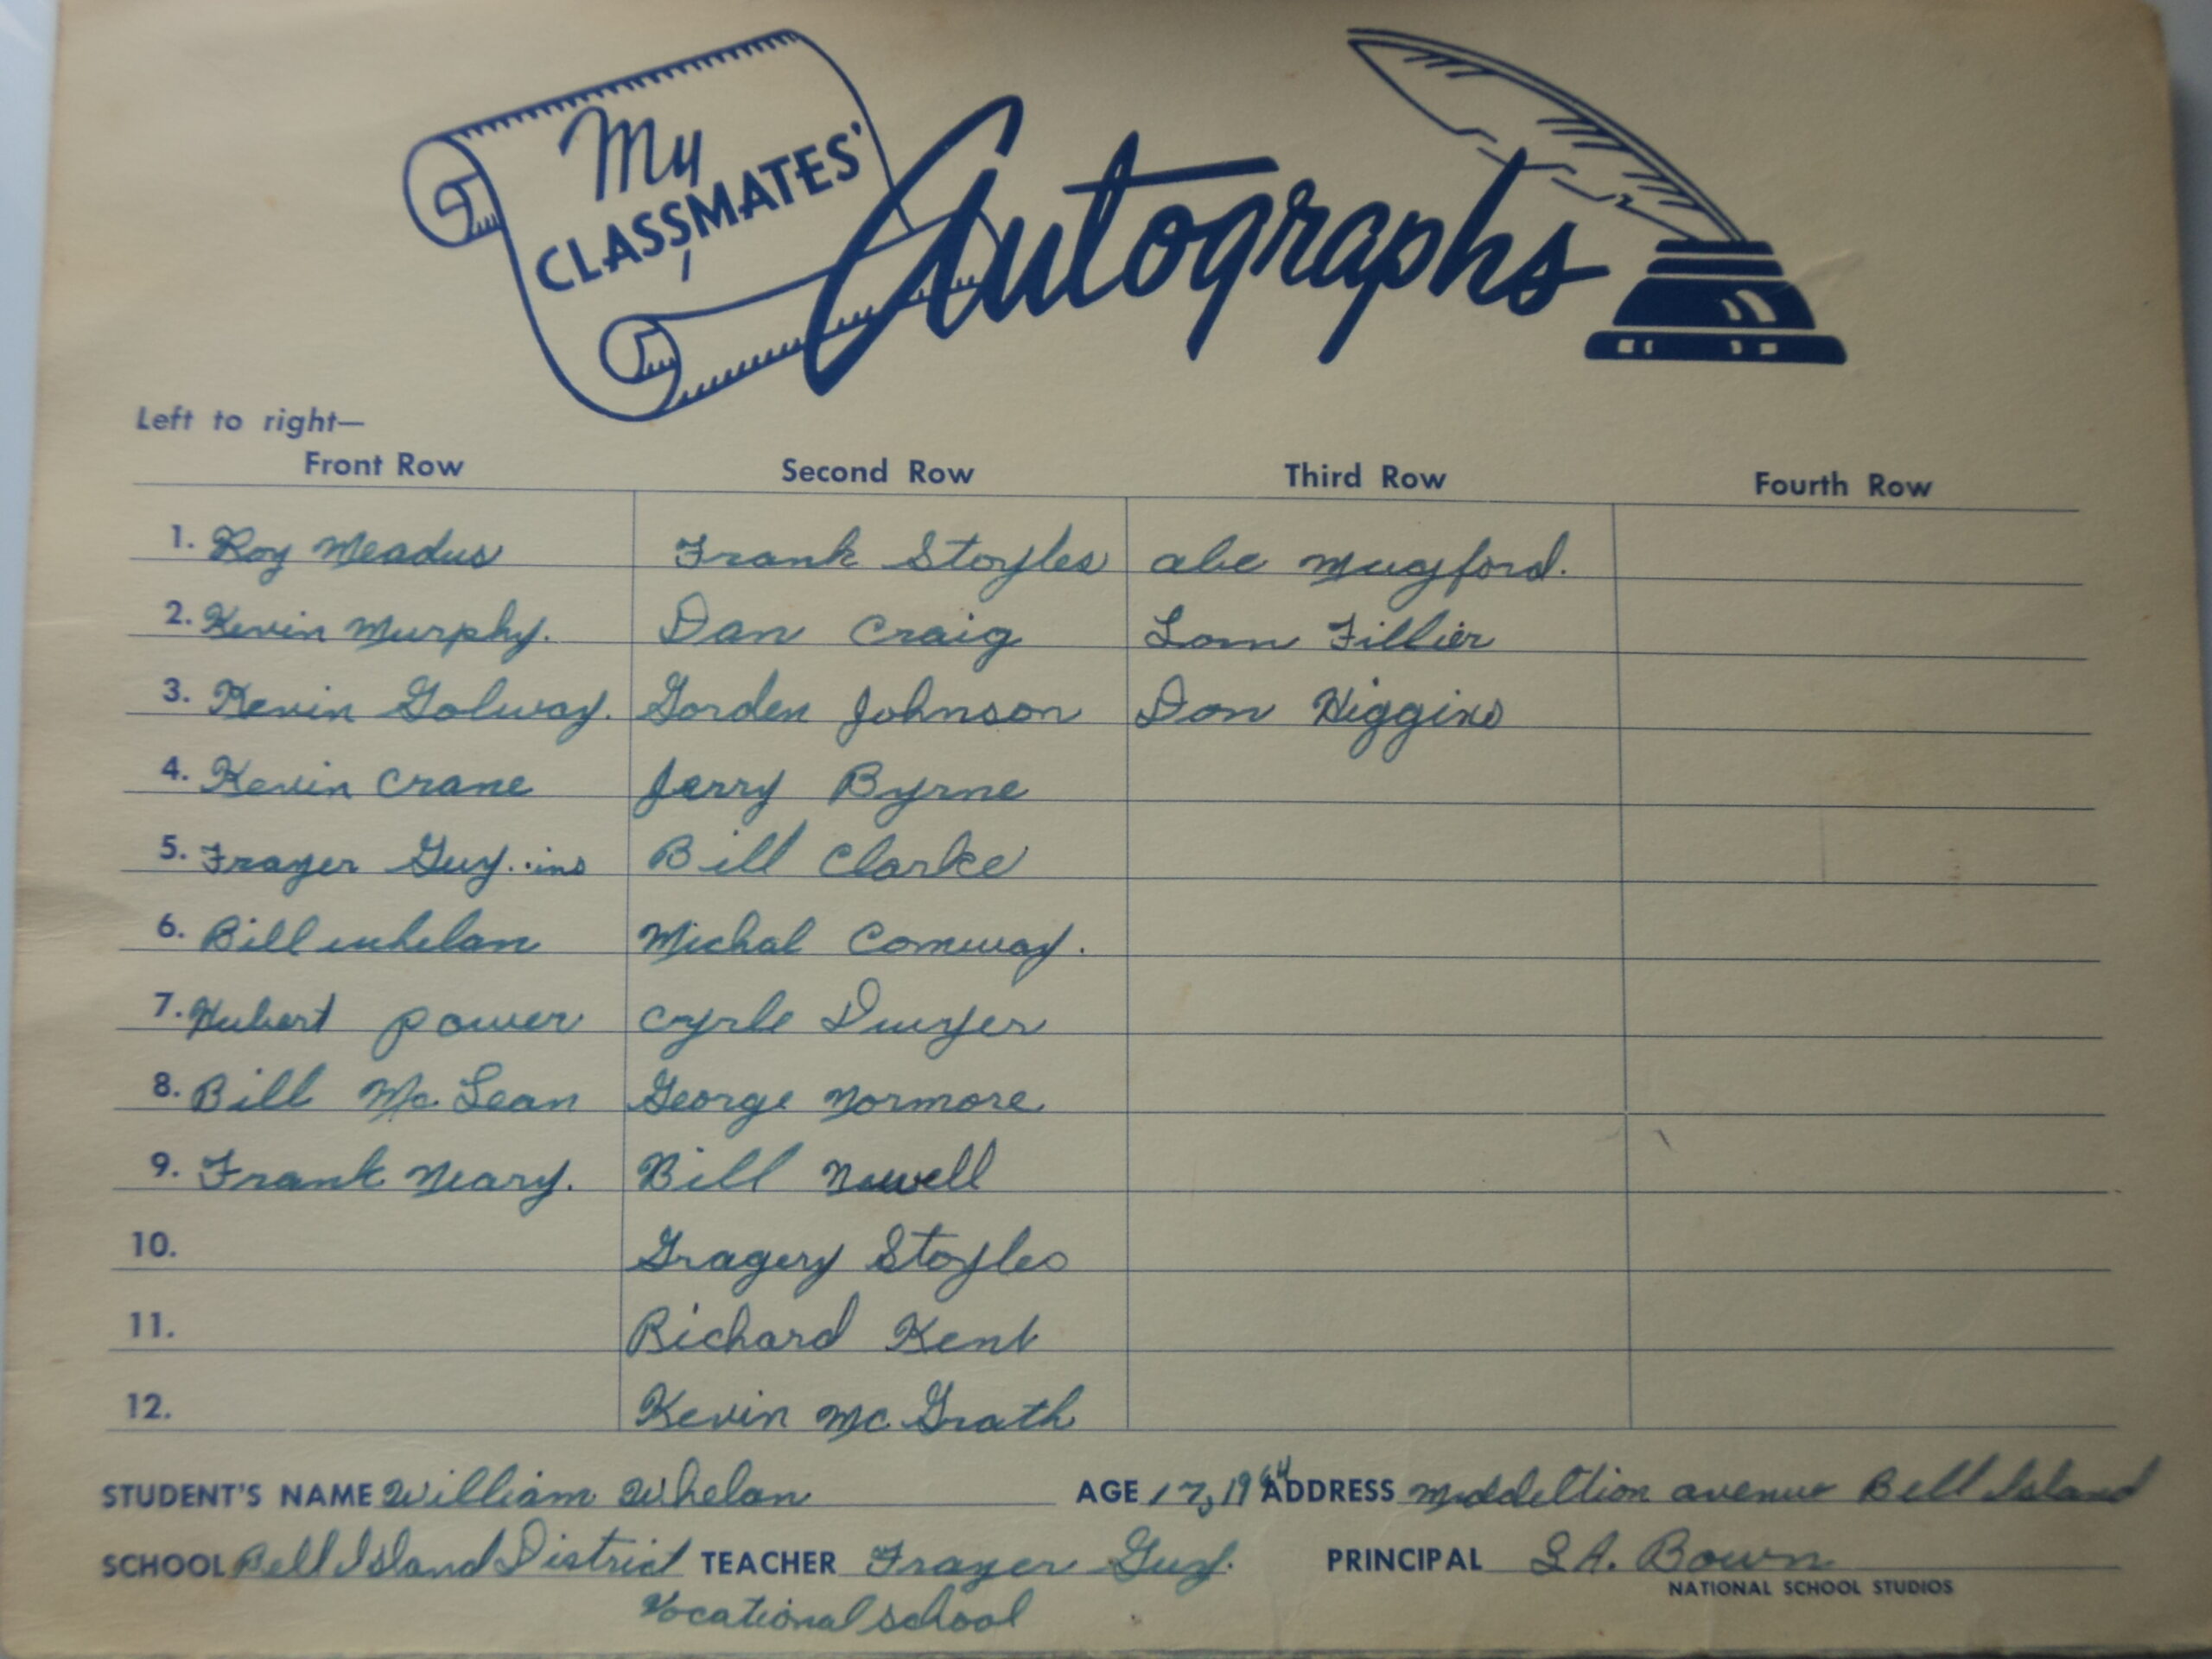 My
CLASSMATES'
Autographs
Left to right—
Front Row Second Row Third Row Fourth Row
1. Roy Meadus Frank Stoyles abe mugford.
2. Kevin Murphy. Dan Craig Lom Fillier
3. Kevin Golway. Gorden Johnson Don Higgins
4. Kevin Crane Jerry Byrne
5. Frazer Guy. ins Bill Clarke
6. Bill whelan Michal Conway.
7. Hubert power Cyrle Dwyer
8. Bill Mc Lean George Normore
9. Frank Neary. Bill Newell
10. Gragery Stoyles
11. Richard Kent
12. Kevin Mc Grath
STUDENT'S NAME William Whelan AGE 17, 1964 ADDRESS Middeltion avenue Bell Island
SCHOOL Bell Island District TEACHER Frazer Guy. PRINCIPAL A. Bown
NATIONAL SCHOOL STUDIOS
Vocational school